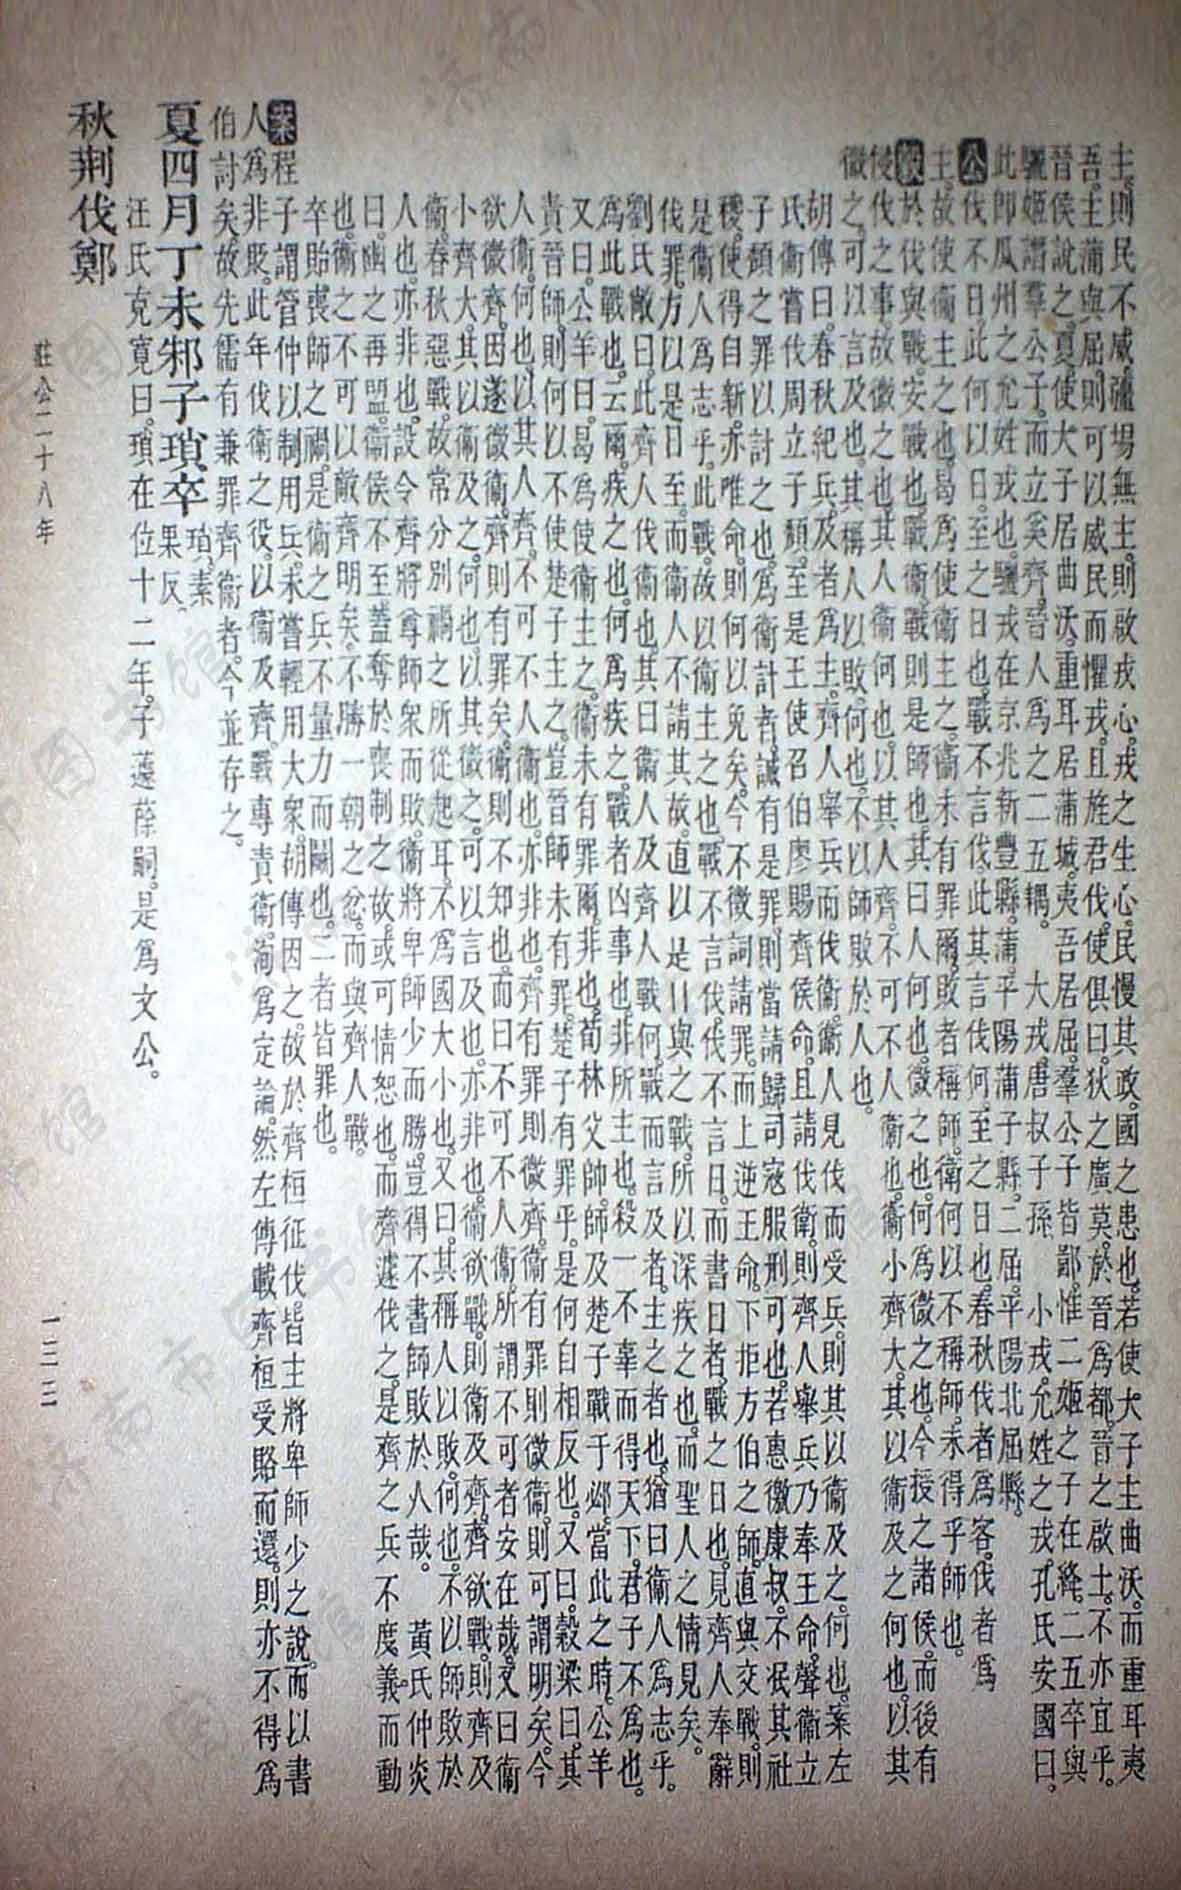 主。則民不威。疆場無主。則啟戎心。戎之生心。民慢其政。國之患也。若使大子主曲沃。而重耳夷
吾主蒲與屈。則可以威民而懼戎。且旌君伐。使俱曰。狄之廣莫。於晉為都。晉之啟土。不亦宜乎。
晉侯說之。夏。使大子居曲沃。重耳居蒲城。夷吾居屈。羣公子皆鄙。惟二姬之子在絳。二五卒與
驪姬譖羣公子。而立奚齊。晉人為之二五耦。 大戎。唐叔子孫 小戎。允姓之戎。孔氏安國曰。
此即瓜州之允姓戎也。驪戎在京兆新豐縣。蒲。平陽蒲子縣。二屈。平陽北屈縣。
公 伐不日。此何以日。至之日也。戰不言伐。此其言伐何。至之日也。春秋伐者為客。伐者為
主。故使衞主之也。曷為使衞主之。衞未有罪爾。敗者稱師。衞何以不稱師。未得乎師也。
穀 於伐與戰。安戰也。戰衞。戰則是師也。其曰人何也。微之也。何為微之也。今授之諸侯。而後有
侵伐之事。故微之也。其人衞何也。以其人齊。不可不人衞也。衞小齊大。其以衞及之何也。以其
微之。可以言及也。其稱人以敗。何也。不以師敗於人也。
胡傳曰。春秋紀兵。及者為主。齊人舉兵而伐衞。衞人見伐而受兵。則其以衞及之。何也。案左
氏。衞嘗伐周立子頹。至是王使召伯廖賜齊侯命。且請伐衞。則齊人舉兵乃奉王命。聲衞立
子頹之罪以討之也。為衞計者。誠有是罪。則當請歸司寇服刑可也。若惠徼康叔。不泯其社
稷。使得自新。亦唯命。則何以免矣。今不徵詞請罪。而上逆王命。下拒方伯之師。直與交戰。則
是衞人為志乎。此戰。故以衞主之也。戰不言伐。伐不言日。而書日者。戰之日也。見齊人奉辭
伐罪。方以是日至。而衞人不請其故。直以是日與之戰。所以深疾之也。而聖人之情見矣。
劉氏敞曰。此齊人伐衞也。其曰衞人及齊人戰何。戰而言及者。主之者也。猶曰衞人為志乎
為此戰也云爾。疾之也。何為疾之。戰者凶事也。非所主也。殺一不辜而得天下。君子不為也。
又曰。公羊曰。曷為使衞主之。衞未有罪爾。非也。荀林父帥師及楚子戰于邲。當此之時。公羊
責晉師。則何以不使楚子主之。豈晉師未有罪。楚子有罪乎。是何自相反也。又曰。穀梁曰。其
人衞。何也。以其人齊。不可不人衞也。亦非也。齊有罪則微齊。衞有罪則微衞。則可謂明矣。今
欲微齊。因遂微衞。齊則有罪矣。衞則不知也。而曰不可不人衞。所謂不可者安在哉。又曰。衞
小齊大。其以衞及之。何也。以其微之。可以言及也。亦非也。衞欲戰。則衞及齊。齊欲戰。則齊及
衞。春秋惡戰。故常分別禍之所從起耳。不為國大小也。又曰。其稱人以敗。何也。不以師敗於
人也。亦非也。設令齊將尊師衆而敗。衞將卑師少而勝。豈得不書師敗於人哉。 黃氏仲炎
曰。幽之再盟。衞侯不至。蓋奪於喪制之故。或可情恕也。而齊遽伐之。是齊之兵不度義而動
也。衞之不可以敵齊明矣。不勝一朝之忿。而與齊人戰。
卒貽喪師之禍。是衞之兵不量力而鬬也。二者皆罪也。
案 程子謂管仲以制用兵。未嘗輕用大衆。胡傳因之。故於齊桓征伐。皆主將卑師少之說。而以書
人為非貶。此年伐衞之役。以衞及齊。戰專責衞。洵為定論。然左傳載齊桓受賂而還。則亦不得為
伯討矣。故先儒有兼罪齊衞者。今並存之。
夏四月丁未邾子瑣卒 瑣。素果反。
汪氏克寬曰。瑣在位十二年。子蘧蒢嗣。是為文公。
秋荆伐鄭
莊公二十八年
一三三